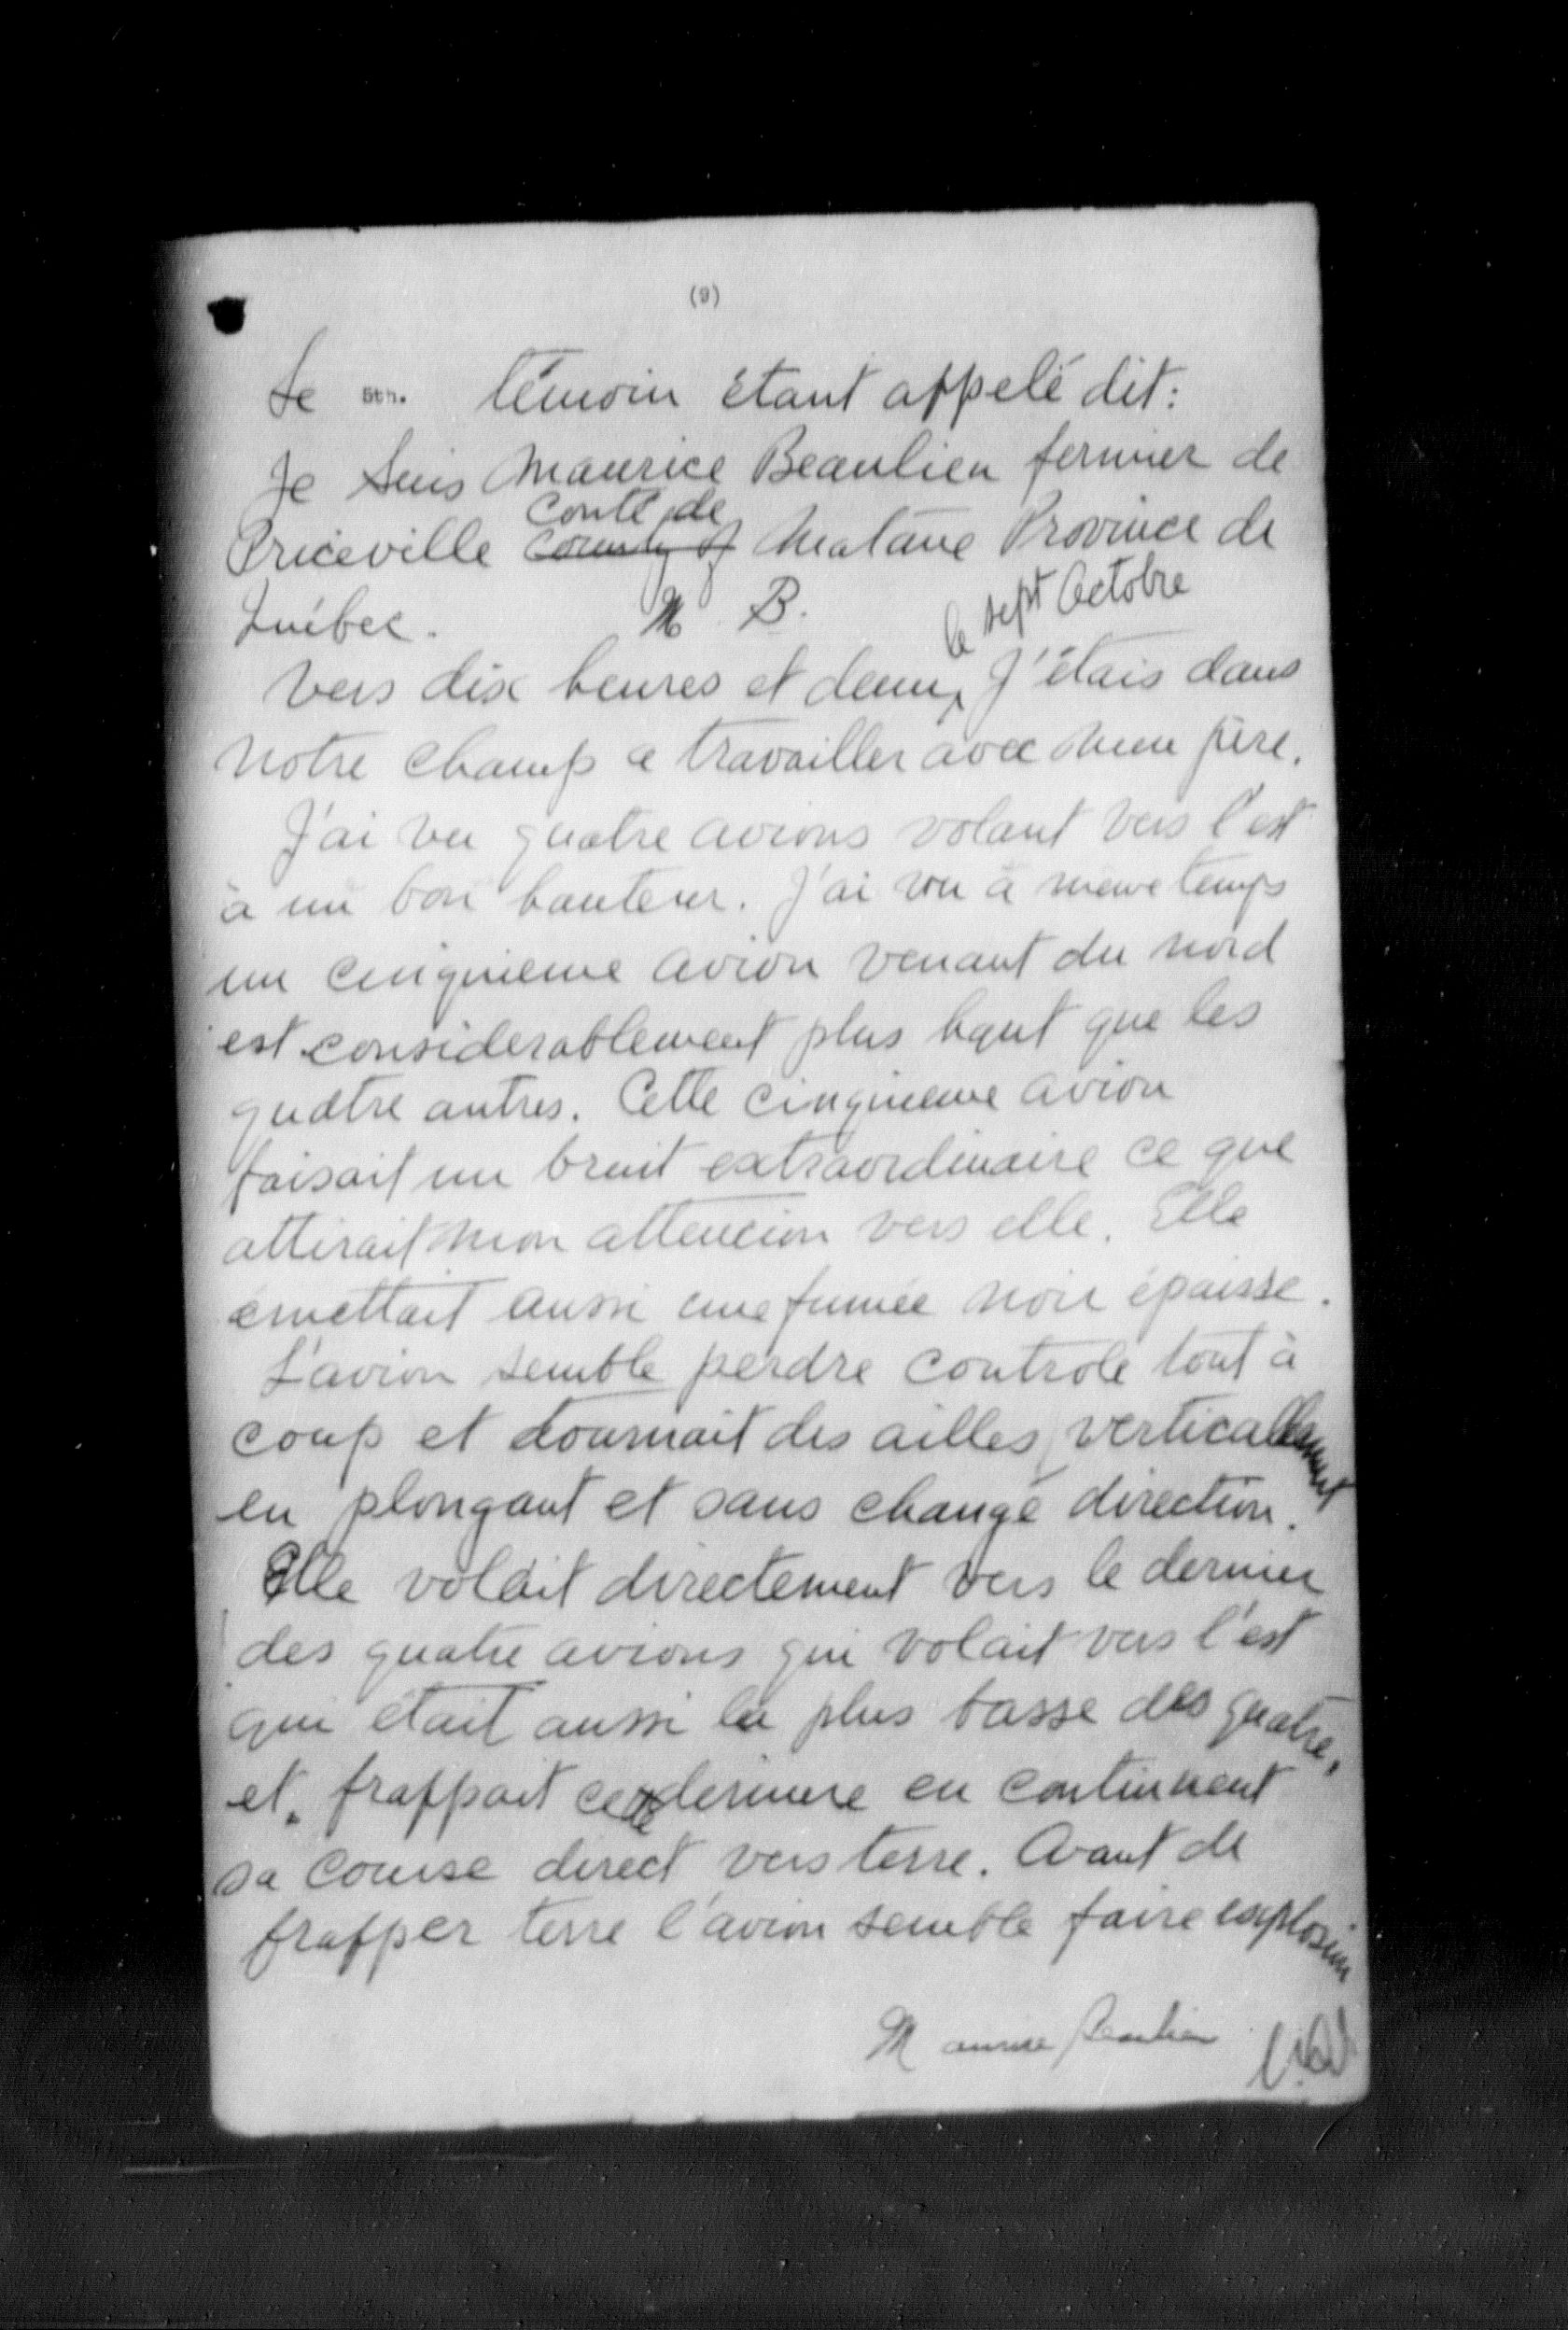 (9)
Le 5th. témoin étant appelé dit:
Je suis Maurice Beaulieu fermier de
Conté de
Priceville County of Matane Province de
Québec. M B.
le sept Octobre
Vers dix heures et demie, J'étais dans
notre champ a travailler avec mon père.
J'ai vu quatre avions volant vers l'est
à un bon hauteur. J'ai vu à meme temps
un cinquieme avion venant du nord
est considerablement plus haut que les
quatre autres. Cette cinquieme avion
faisait un bruit extraordinaire ce que
attirait mon attencion vers elle. Elle
émettait aussi une fumée noir épaisse.
L'avion semble perdre controle tout à
coup et tournait des ailles verticallement
en plongant et sans changé direction.
Elle volait directement vers le dernier
des quatre avions qui volait vers l'est
qui était aussi la plus basse des quatre,
et frappait cette derniere en continuent
sa course direct vers terre. Avant de
frapper terre l'avion semble faire explosion
Maurice Beaulieu